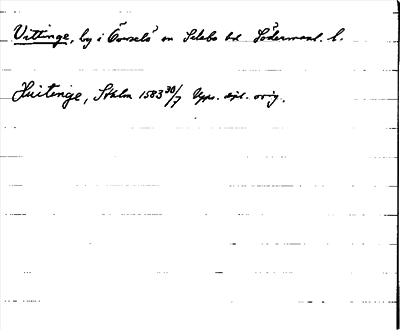 Vittinge, by i Överselö sn Selebo hd Södermanl. l.
Huitinge, Sthlm 1583 30/7 Upps. dpl. orig.